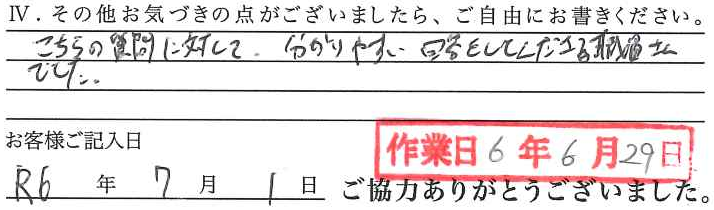 Ⅳ．その他お気づきの点がございましたら、ご自由にお書きください。
こちらの質問に対して、分かりやすい回答をしてくださる職員さん
でした。
お客様ご記入日
作業日 6年6月29日
R6年7月1日 ご協力ありがとうございました。